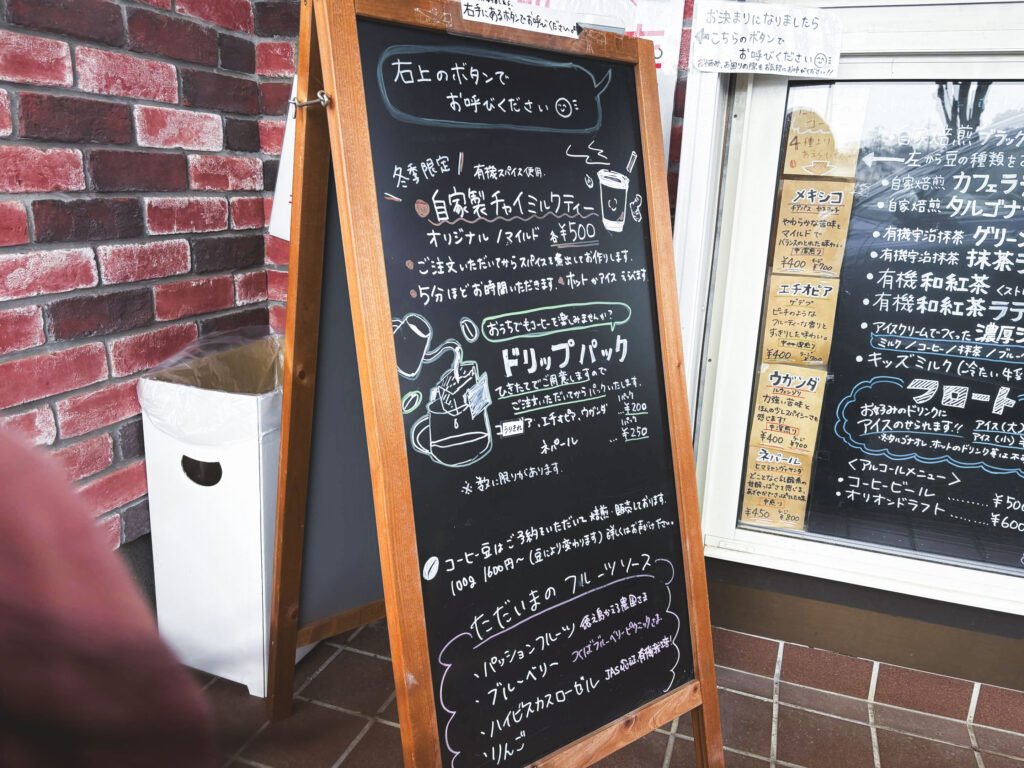 右手にあるボタンでお呼びください
右上のボタンで
お呼びください
冬季限定 有機スパイス使用.
自家製チャイミルクティー
オリジナル/マイルド 各¥500
・ご注文いただいてからスパイスを煮出してお作りします.
・5分ほどお時間いただきます.・ホットかアイスえらべます
おうちでもコーヒーを楽しみませんか?
ドリップパック
ひきたてでご用意しますので
ご注文いただいてからパックいたします.
うりきれ・エチオピア.ウガンダ
1パック
¥200
ネパール ... 1パック
¥250
※数に限りがあります.
コーヒー豆はご予約をいただいて焙煎・販売しております.
100g 1600円〜(豆により変わります)詳しくはお声がけ下さい.
ただいまのフルーツソース
・パッションフルーツ
・ブルーベリー つくばブルーベリーピクニックさま
・ハイビスカスローゼル
・りんご
お決まりになりましたら
こちらのボタンで
お呼び下さい
4種より
メキシコ
やわらかな苦味と
マイルドで
バランスのとれた味わい.
中深煎り
¥400 ¥700
エチオピア
ゲデブ
ピーチのような
フルーティーな香りと
すっきりした味わい。
中煎り
¥400 ¥700
ウガンダ
力強い苦味と
ほんの少しスパイシーでも
感じます!
中深煎り
¥400 ¥700
ネパール
中煎り
¥450 ¥800
自家焙煎 ブラック
左から豆の種類を
・自家焙煎 カフェラテ
・自家焙煎 タルゴナ
・有機宇治抹茶 グリーン
・有機宇治抹茶 抹茶
・有機和紅茶
・有機和紅茶ラテ
アイスクリームでつくった濃厚
ミルク/コーヒー/抹茶/ブルー
・キッズミルク(冷たい.
フロート
お好みのドリンクに
アイスのせられます!!
アイス(大)
アイス(小)
<アルコールメニュー>
・コーヒービール ......... ¥500
・オリオンドラフト ...... ¥600